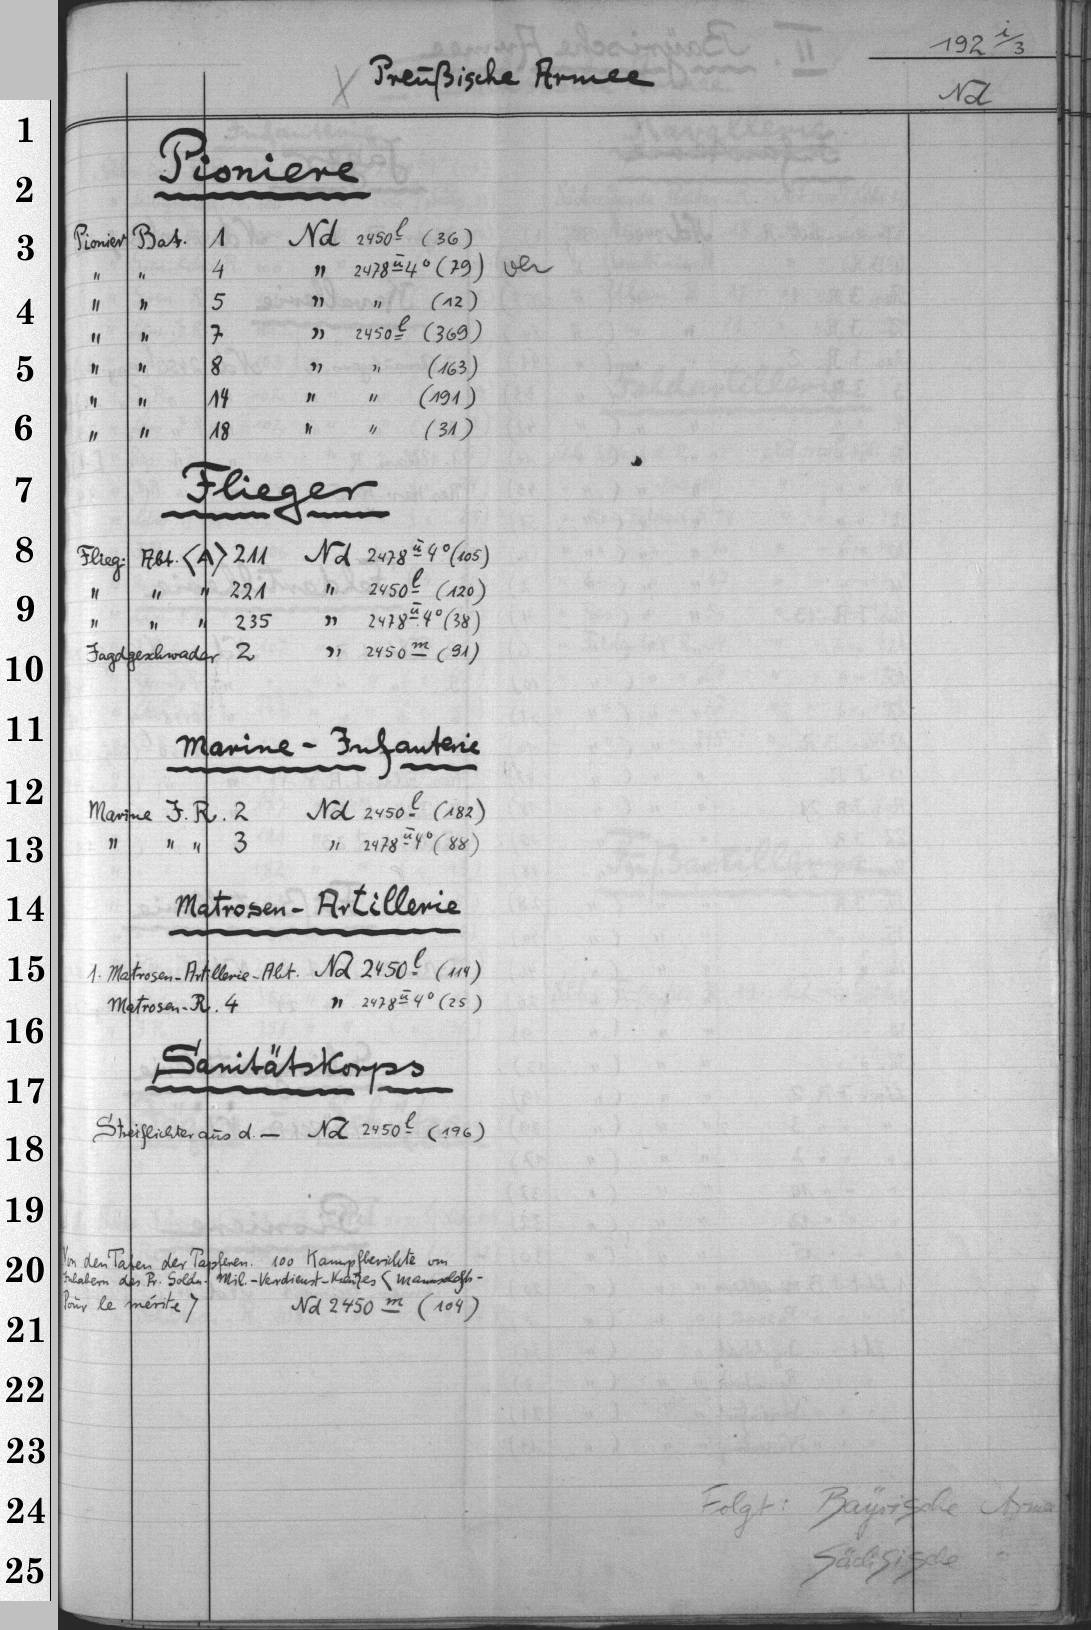 192 i/3
Preußische Armee
Nd
Pioniere
Pionier Bat. 1 Nd 2450 l (36)
" " 4 " 2478 ü 4° (79)
" " 5 " " (12)
" " 7 " 2450 l (369)
" " 8 " " (163)
" " 14 " " (191)
" " 18 " " (31)
Flieger
Flieg. Abt. (A) 211 Nd 2478 ü 4° (105)
" " " 221 " 2450 l (120)
" " " 235 " 2478 ü 4° (38)
Jagdgeschwader 2 " 2450 m (91)
Marine - Infanterie
Marine J. R. 2 Nd 2450 l (182)
" " " 3 " 2478 ü 4° (88)
Matrosen - Artillerie
1. Matrosen-Artillerie-Abt. Nd 2450 l (114)
Matrosen-R. 4 " 2478 ü 4° (25)
Sanitätskorps
Streiflichter aus d. — Nd 2450 l (196)
Von den Taten der Tapferen. 100 Kampfberichte von
Inhabern des Pr. Goldn. Mil.-Verdienst-Kreuzes (Mannschfts-
Pour le mérite) Nd 2450 m (104)
Folgt: Bayrische Armee
Sächsische "
1
2
3
4
5
6
7
8
9
10
11
12
13
14
15
16
17
18
19
20
21
22
23
24
25